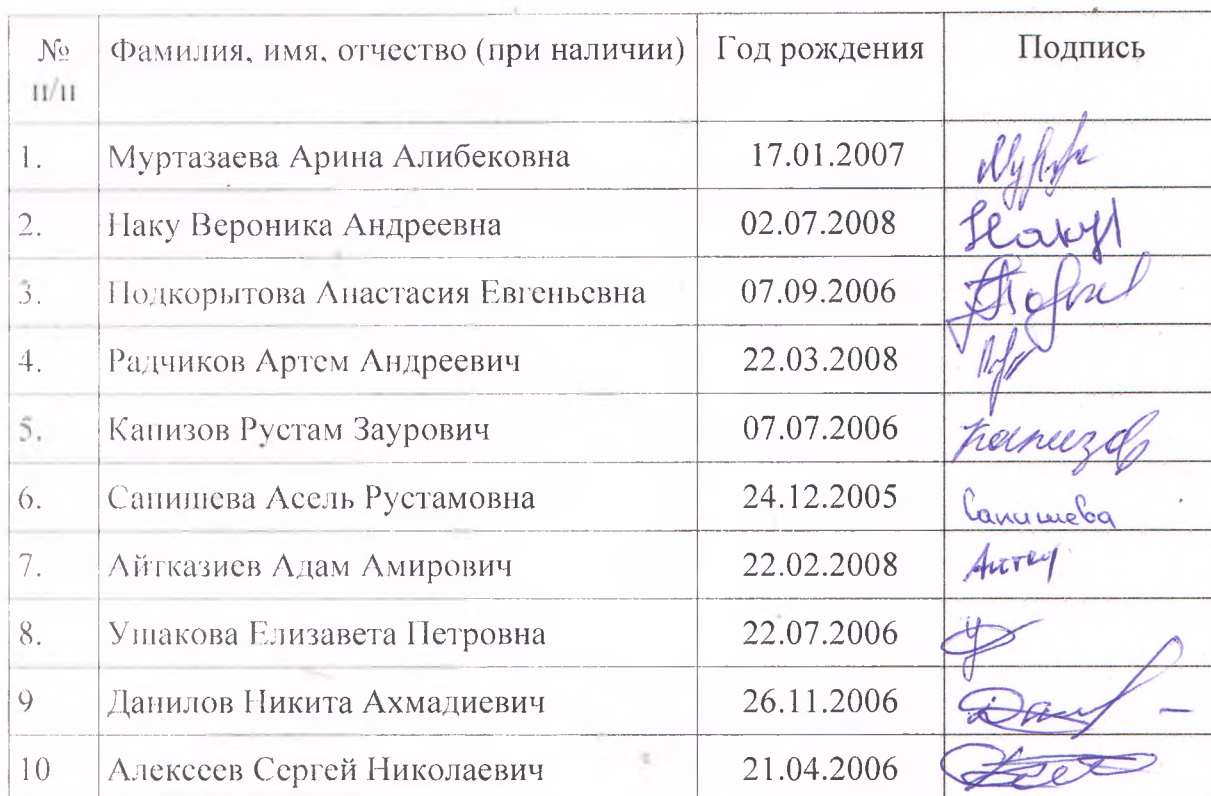 № Фамилия, имя, отчество (при наличии) Год рождения Подпись
п/п
1. Муртазаева Арина Алибековна 17.01.2007
2. Наку Вероника Андреевна 02.07.2008 Наку
3. Подкорытова Анастасия Евгеньевна 07.09.2006
4. Радчиков Артем Андреевич 22.03.2008
5. Капизов Рустам Заурович 07.07.2006 Капизов
6. Сапишева Асель Рустамовна 24.12.2005 Сапишева
7. Айтказиев Адам Амирович 22.02.2008
8. Ушакова Елизавета Петровна 22.07.2006
9 Данилов Никита Ахмадиевич 26.11.2006
10 Алексеев Сергей Николаевич 21.04.2006